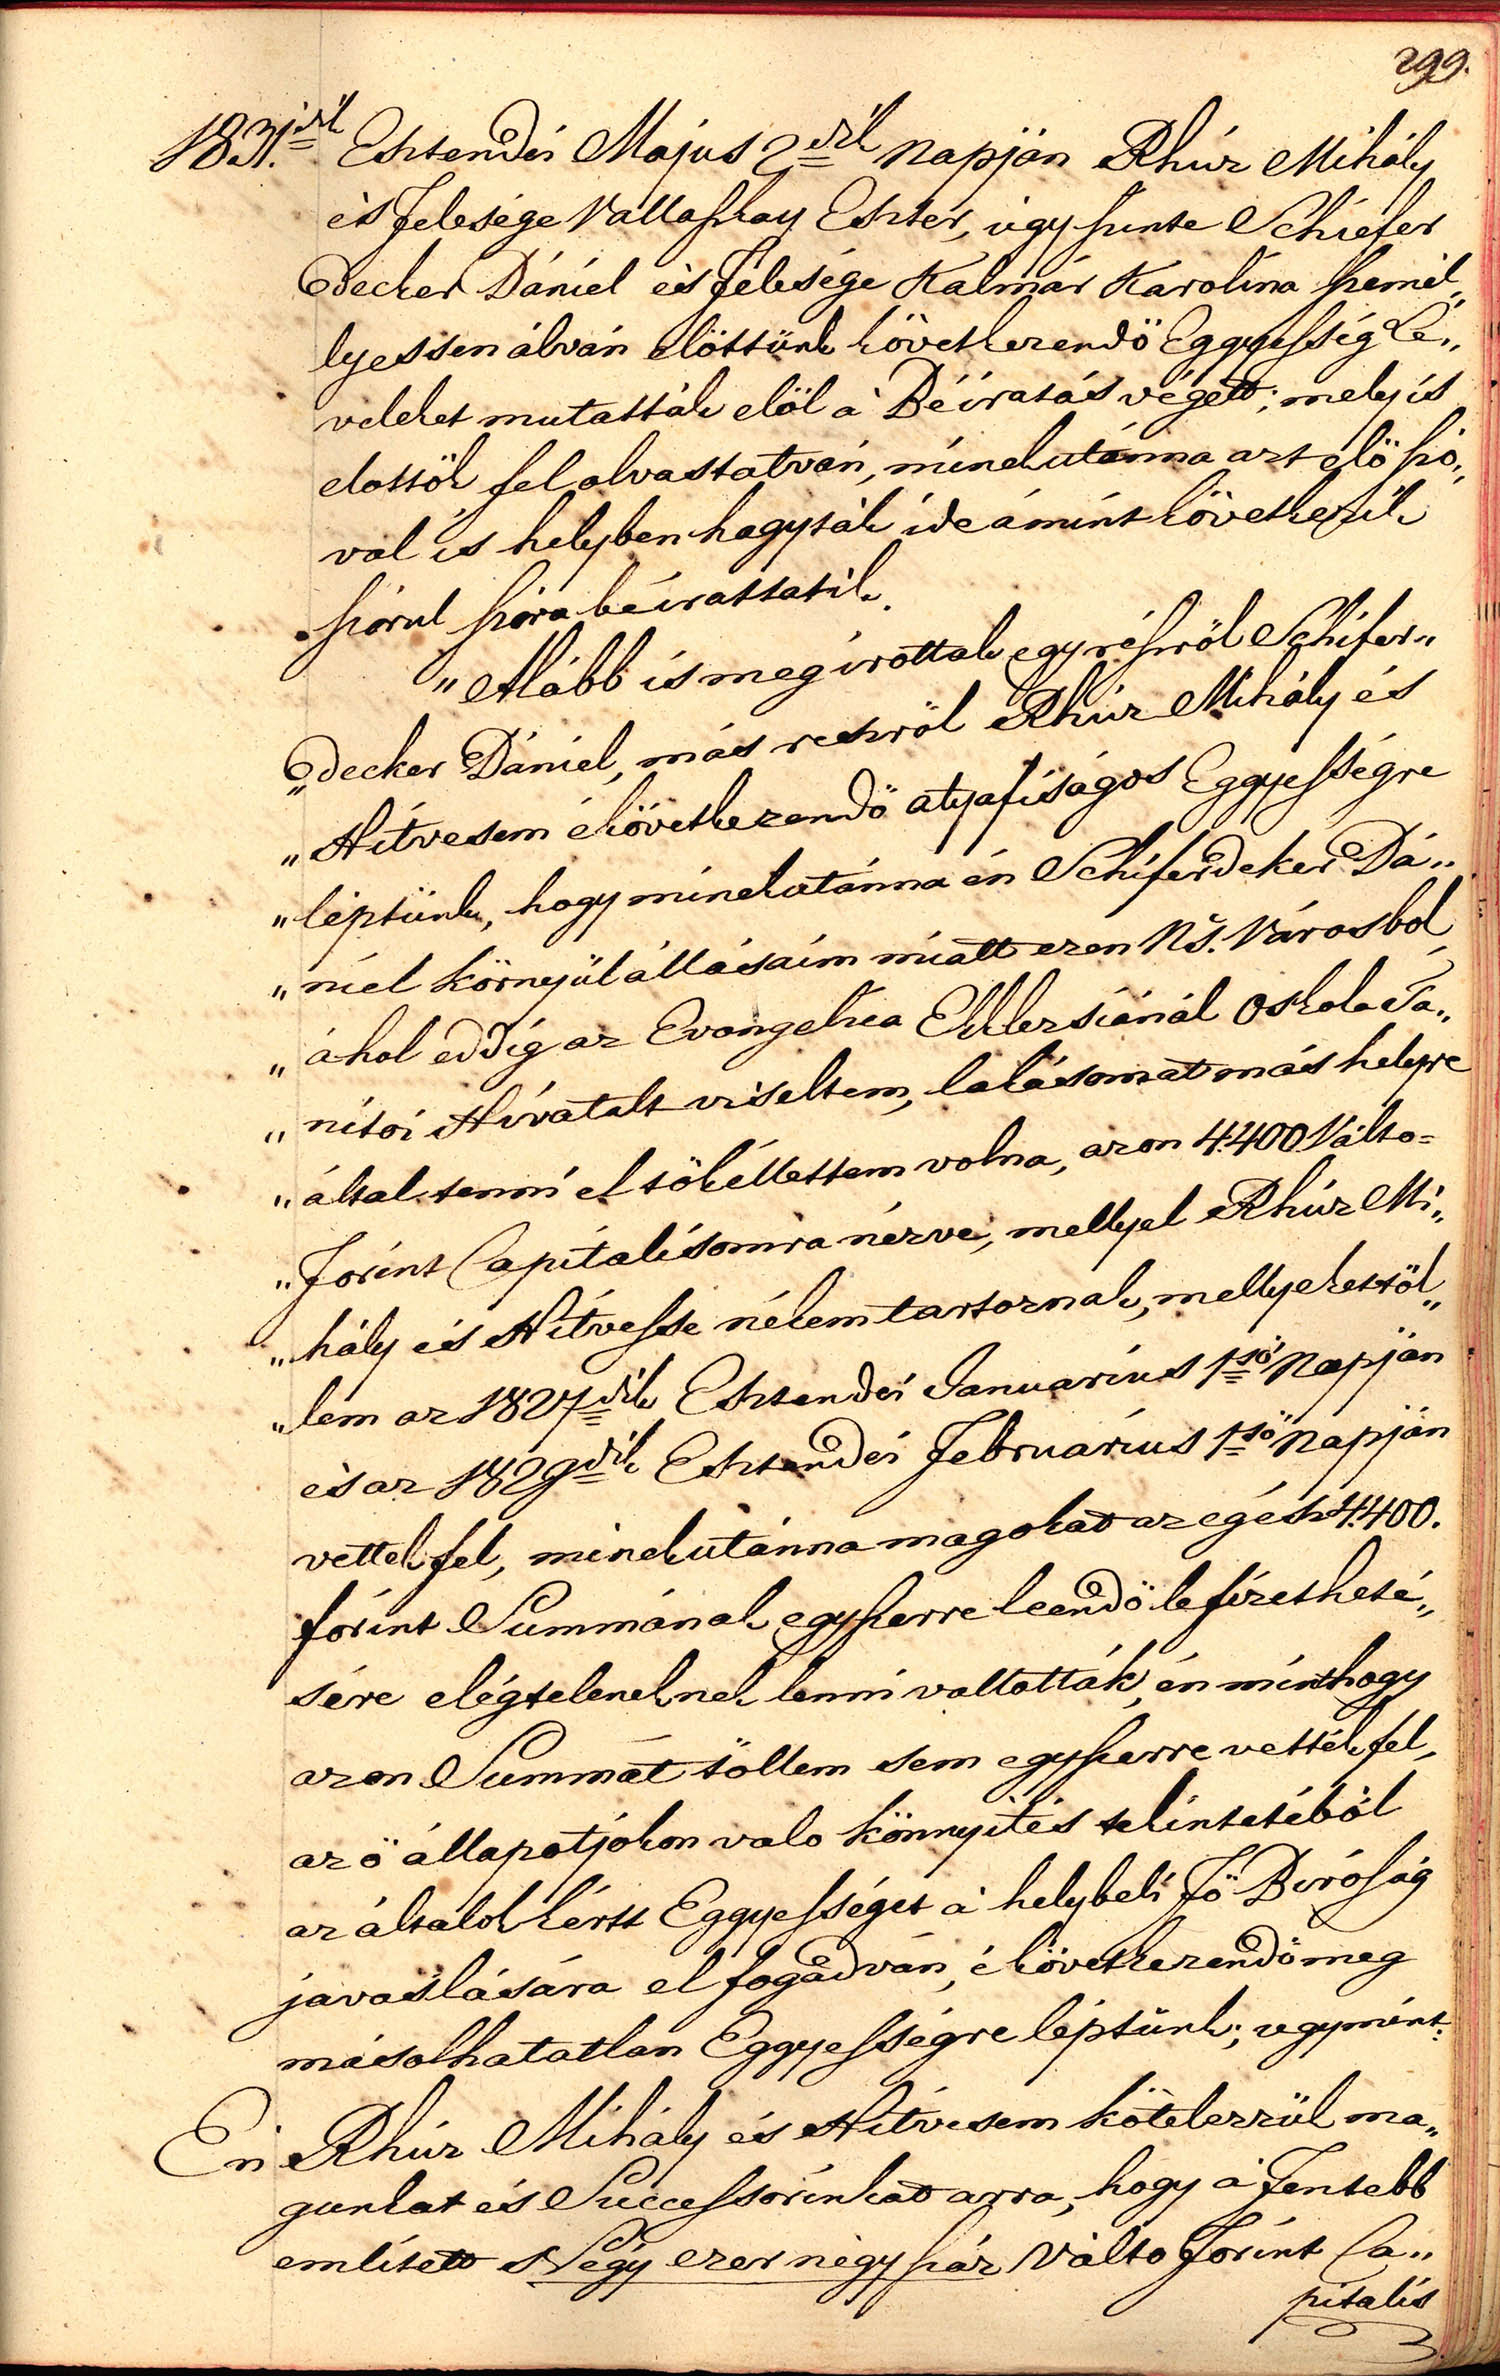 299.
1831.dik Esztendei Május 2dik Napján Rhúz Mihály
és Felesége Vallaskay Eszter, úgy szinte Schiefer
decker Dániel és Felesége Kalmár Karolina szemé„
lyessen álván elöttünk következendö Eggyesség Le„
veleket mutatták elöl a' Béiratás végett; mely is
elöttök fel olvastatván, minekutánna azt élö szó„
val is helyben hagyták ide ámint következik
szórul szóra béirattatik.
„Alább is meg irottak egy részröl Schifer„
„decker Dániel, más részröl Rhúz Mihály és
„Hitvesem é következendö atyafiságos Eggyességre
„léptünk, hogy minekutánna én Schiferdeker Dá„
„niel környülállásaim miatt ezen Ns. Városbol
„áhol eddig az Evangelica Ekklersiánál Oskola Ta„
„nitói Hivatalt viseltem, lakásomat más helyre
„által tenni el tökéllettem volna, azon 4400 Válto=
„Forint Capitálisomra nézve, mellyel Rhúz Mi„
„hály és Hitvesse nékem tartoznak, mellyeket töl„
„lem az 1827dik Esztendei Januarius 1sö Napján
és az 1829dik Esztendei Februarius 1sö Napján
vettek fel, minekutánna magokat az egész 4400.
forint Summának egyszerre leendö le fizetheté„
sére elégteleneknek lenni vallották, én minthogy
azon Summát töllem sem egyszerre vették fel,
az ö állapotjokon valo könnyités tekintetéböl
az általok kértt Eggyességet a' helybeli Fö Biróság
javaslására el fogadván, é következendö meg
másolhatatlan Eggyességre léptünk; ugymint:
Én Rhúz Mihály és Hitvesem kötelezzük ma„
gunkat és Successorinkat arra, hogy a' Fentebb
emlitett Négy ezer négy száz Válto Forint Ca„
pitalis